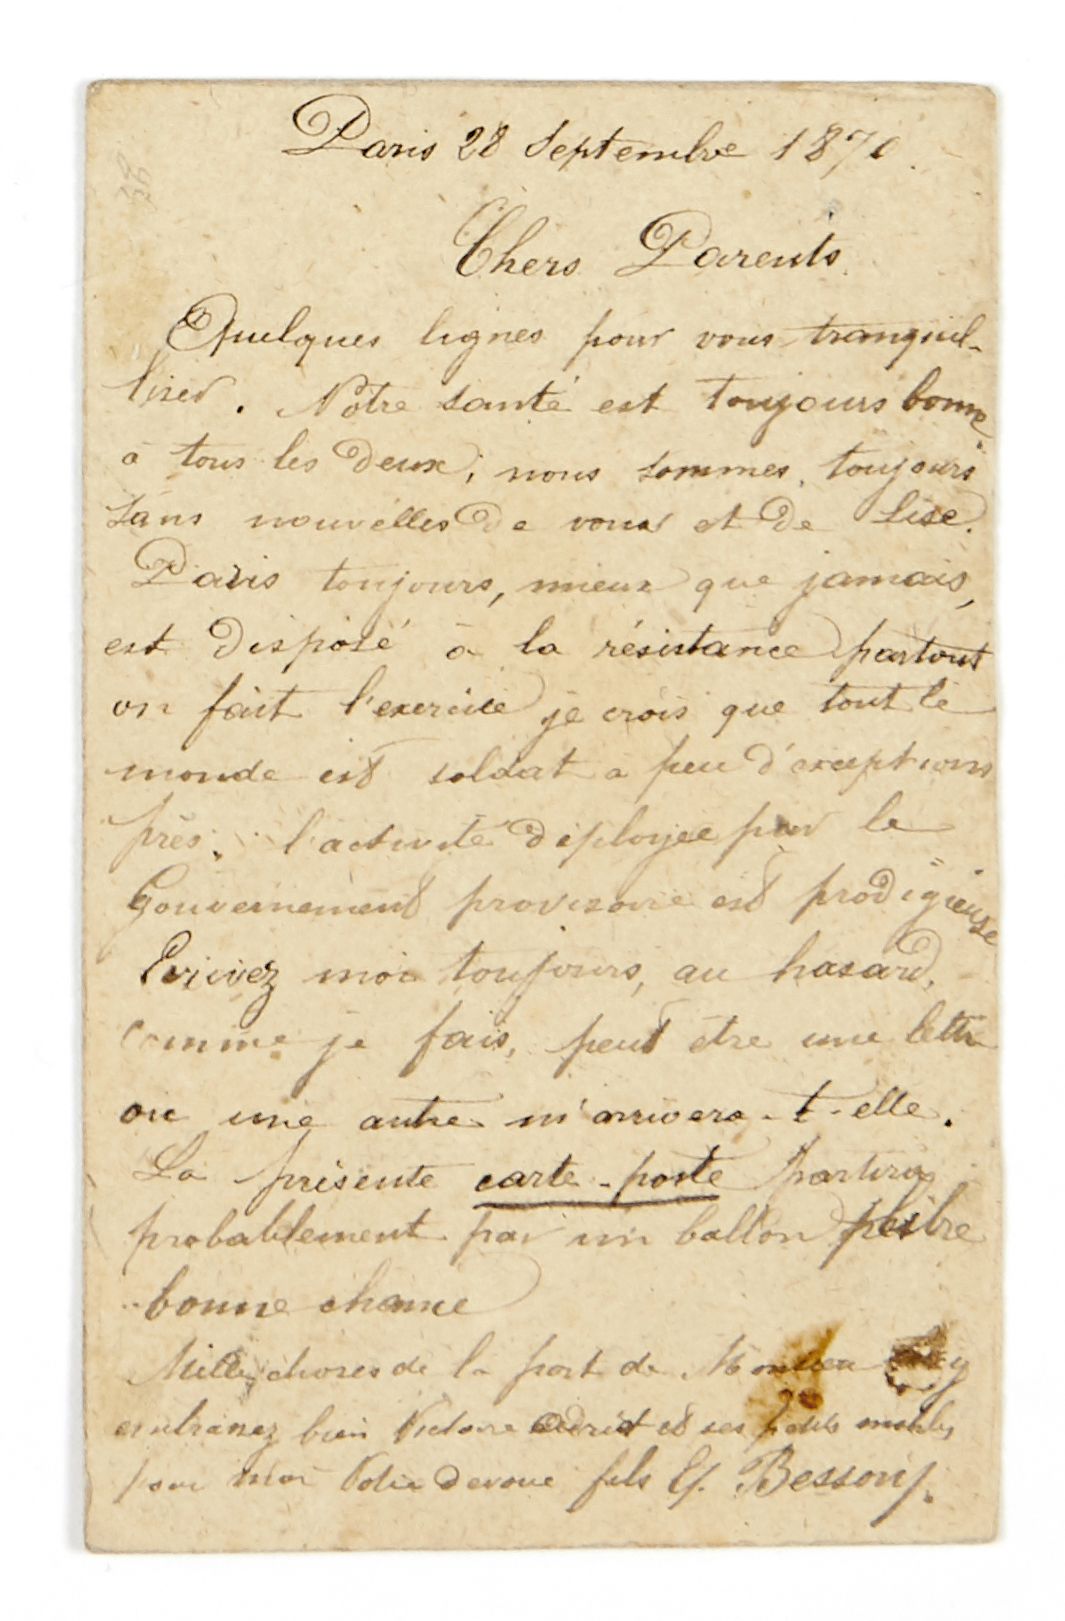 Paris 28 Septembre 1870.
Chers Parents
Quelques lignes pour vous tranquil-
liser. Notre santé est toujours bonne
à tous les deux; nous sommes toujours
sans nouvelles de vous et de Lise.
Paris toujours, mieux que jamais,
est disposé à la résistance partout
on fait l'exercice je crois que tout le
monde est soldat a peu d'exceptions
près. l'activité déployée par le
Gouvernement provisoire est prodigieuse
Ecrivez moi toujours, au hasard,
comme je fais, peut être une lettre
ou une autre m'arrivera-t-elle.
La présente carte-poste partira
probablement par un ballon libre
bonne chance
Mille choses de la part de
embrassez bien Victoire et ses petits
pour moi Votre devoué fils Ef. Besson